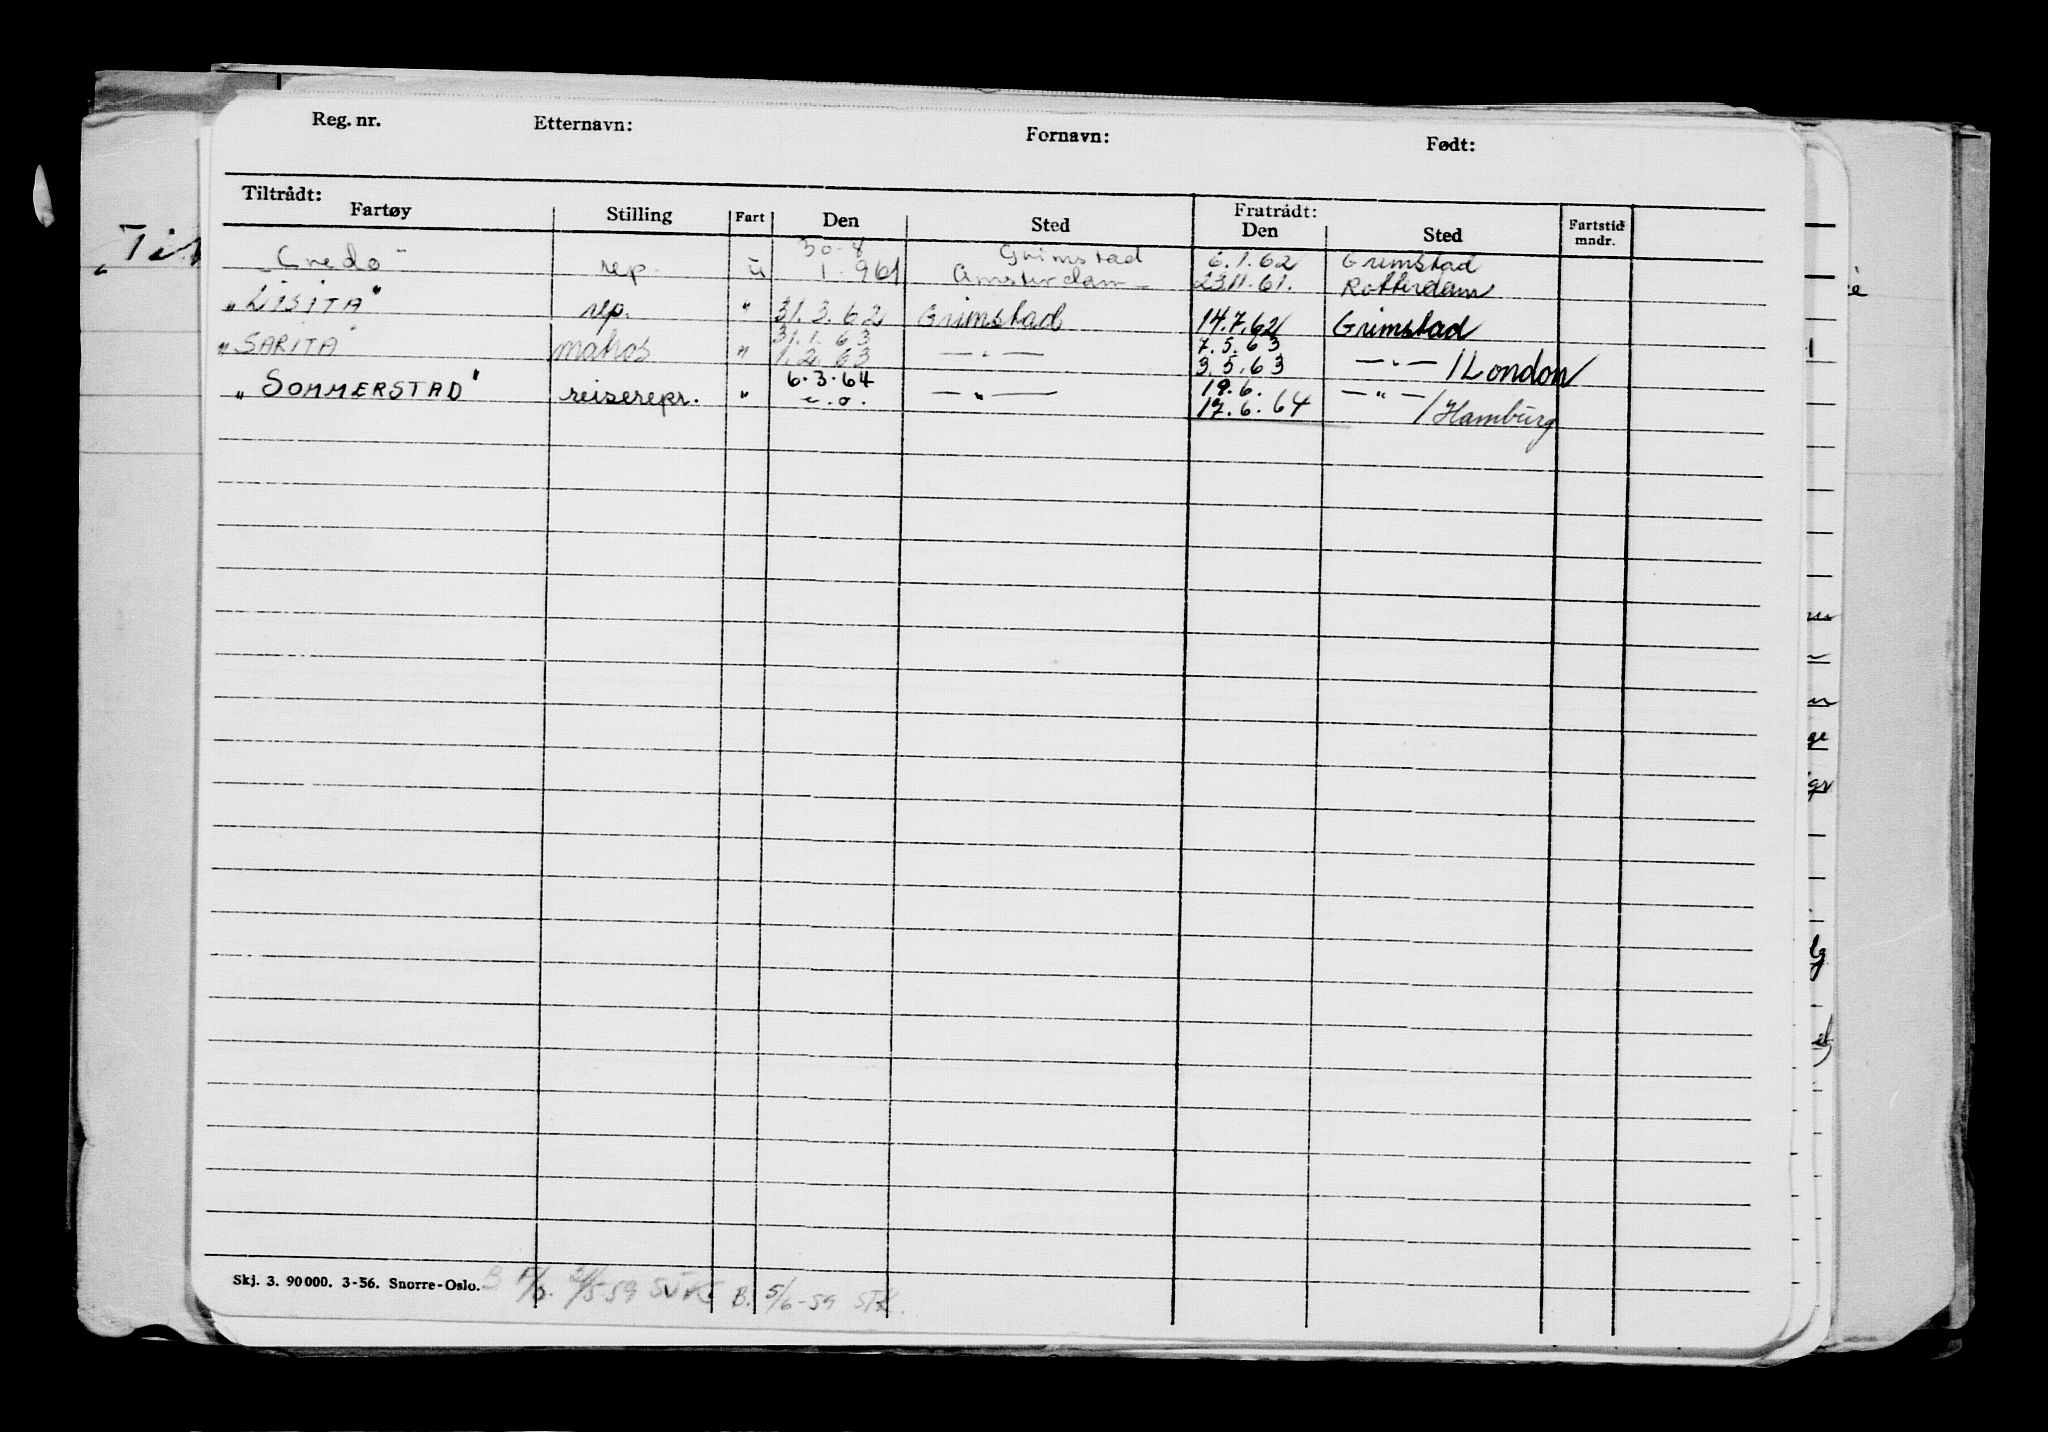 Reg. nr. Etternavn: Fornavn: Født:
Tiltrådt: Fratrådt:
Fartøy Stilling Fart Den Sted Den Sted Fartstid mndr.
30-8 Grimstad 6.1.62 Grimstad
"Credo" rep. u 1.961 Amsterdam 23.11.61. Rotterdam
"LISITA" rep. " 31.3.62 Grimstad 14.7.62 Grimstad
31.1.63 7.5.63
"SARITA" " 1.2.63 — " — 3.5.63 — " — / London
6.3.64 19.6.
"SOMMERSTAD" reiserepr. " — " — 17.6.64 — " — / Hamburg
Skj. 3. 90000. 3-56. Snorre-Oslo.
B. 5/6-59